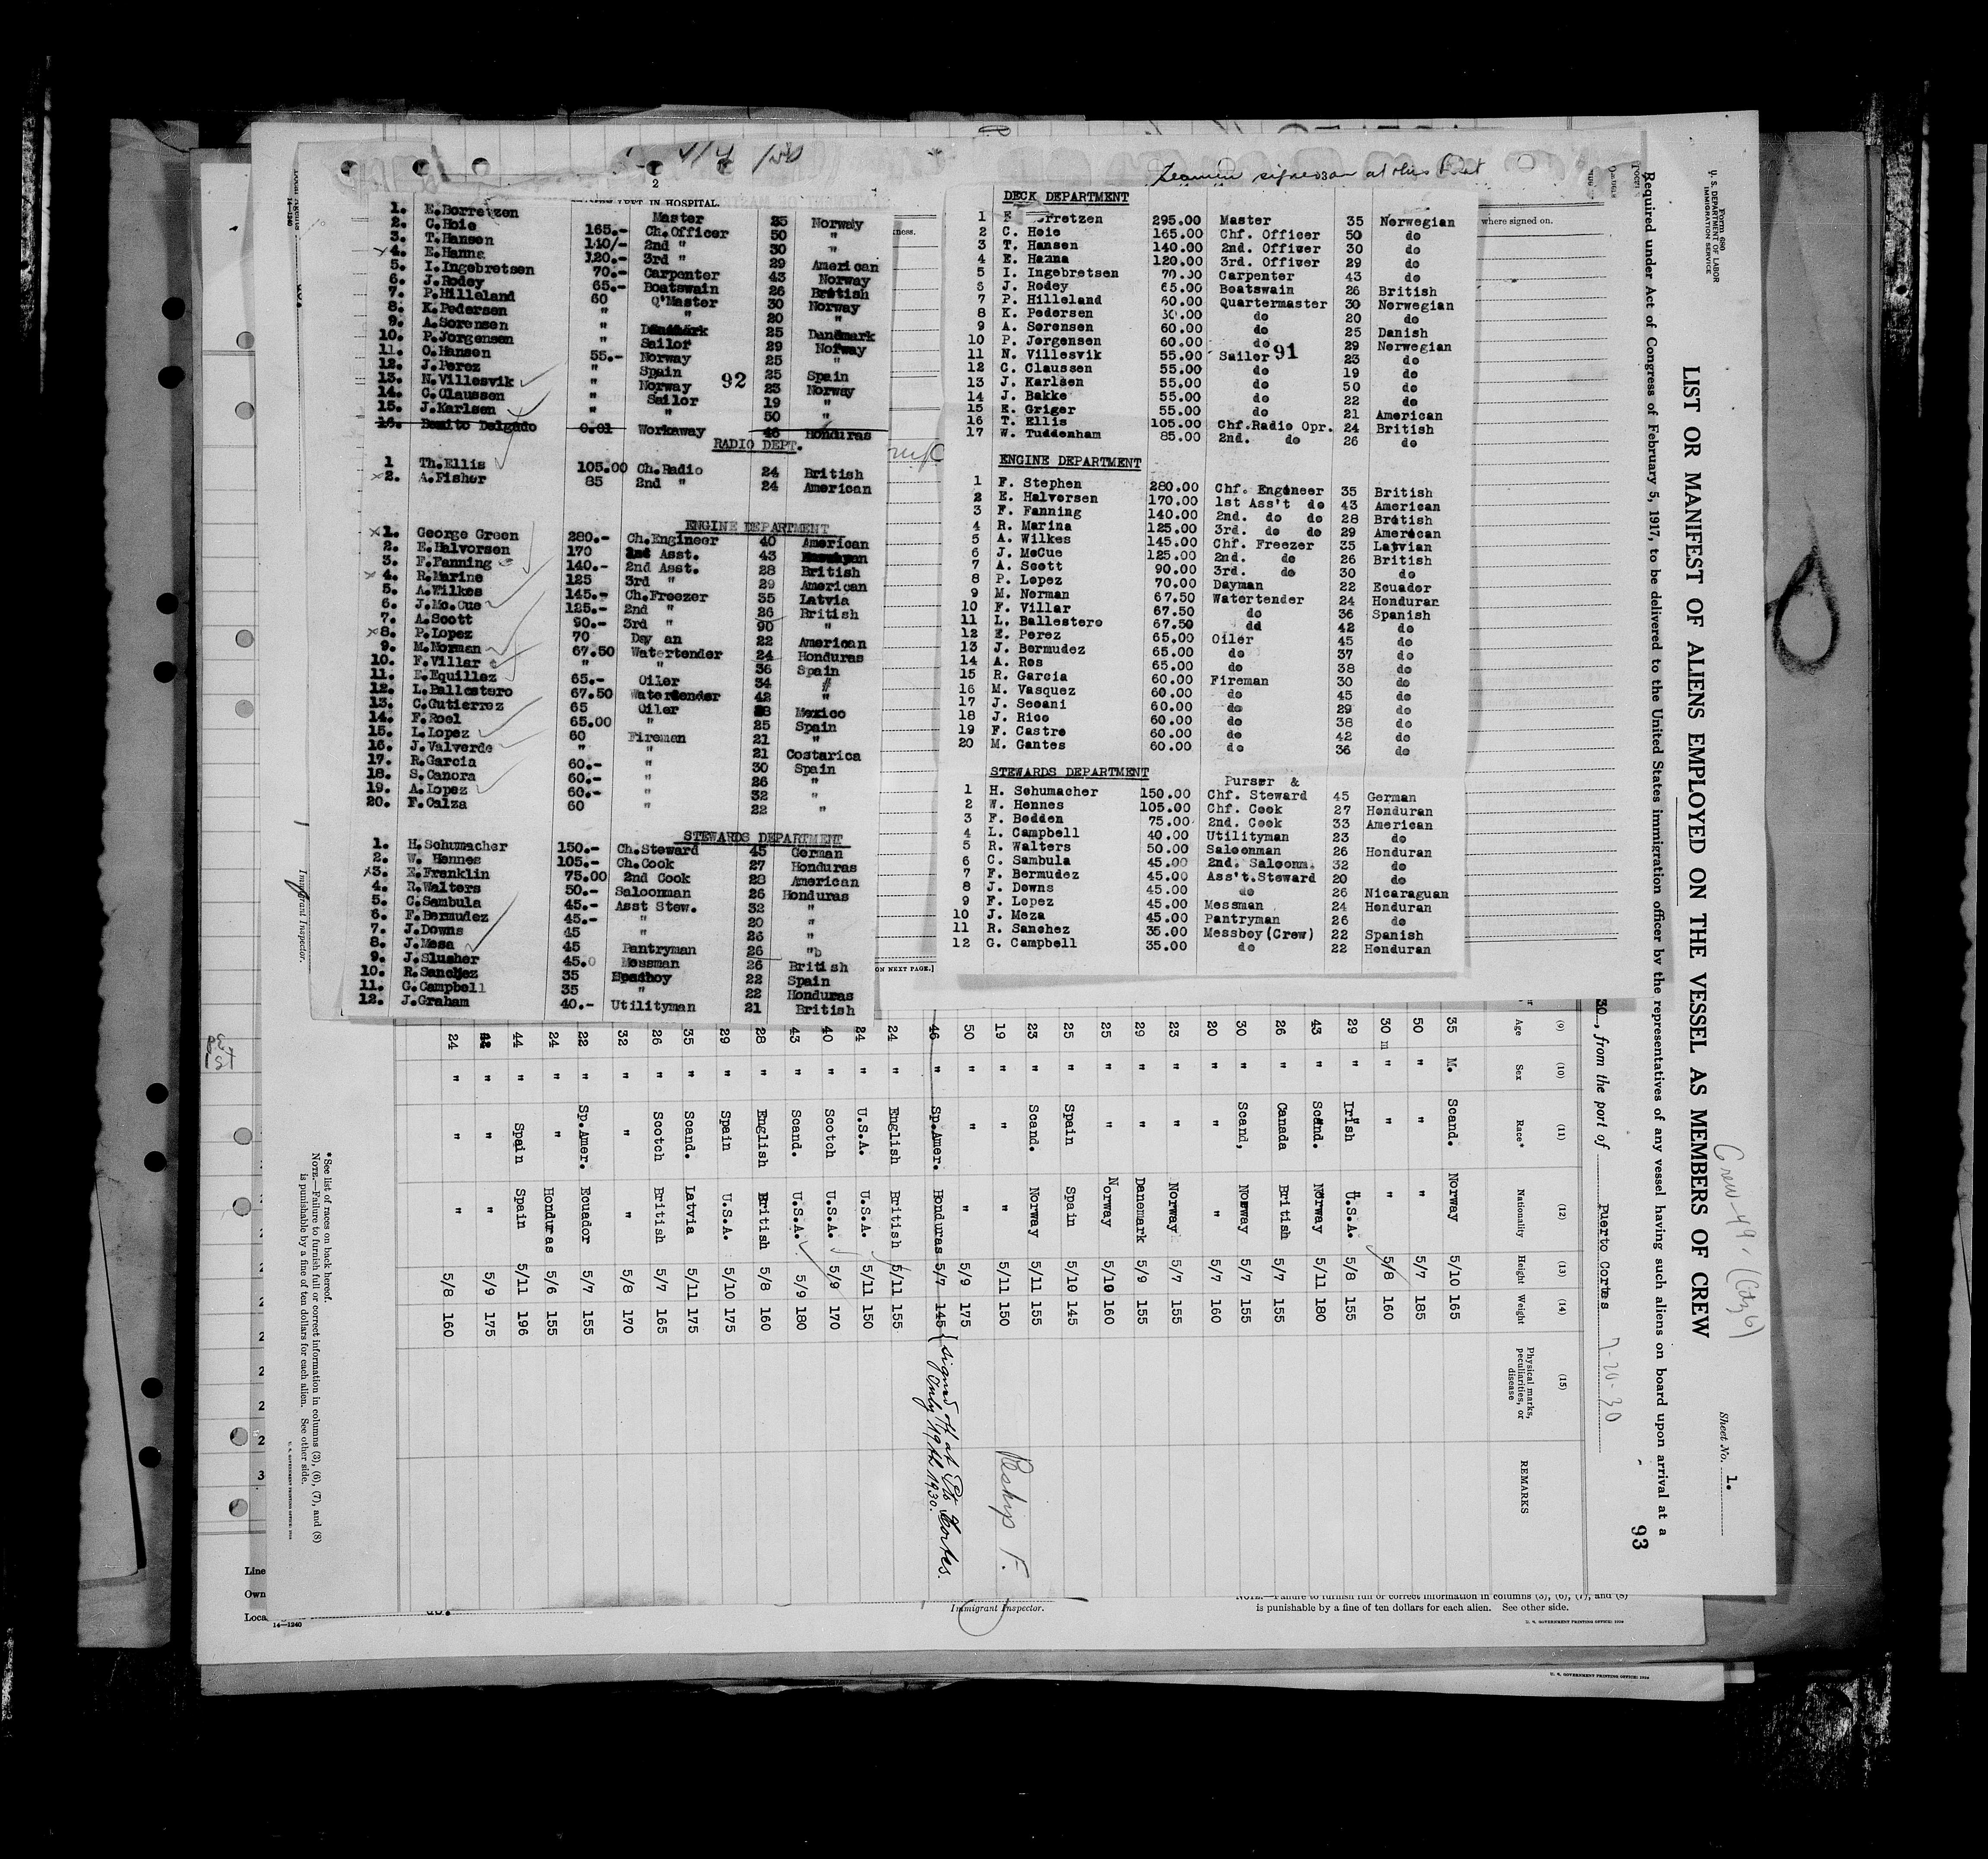 2
IN HOSPITAL.
1. E.Borretzen Master 35 Norway
2. C.Hoie 165.- Ch.Officer 50 "
3. T.Hansen 140/- 2nd " 30 "
4. E.Hanna 120.- 3rd " 29 American
5. I.Ingebretsen 70.- Carpenter 43 Norway
6. J.Rodey 65.- Boatswain 26 British
7. P.Hilleland 60 Q'Master 30 Norway
8. K.Pedersen " " 20 "
9. A.Sorensen " 25 Danemark
10. P.Jorgensen " Sailor 29 Norway
11. O.Hansen 55.- Norway 25 "
12. J.Perez " Spain 25 Spain
13. N.Villesvik " Norway 23 Norway
92
14. C.Claussen " Sailor 19 "
15. J.Karlsen " " 50 "
16. Benito Delgado 0.01 Workaway 46 Honduras
RADIO DEPT.
1 Th.Ellis 105.00 Ch.Radio 24 British
x2. A.Fisher 85 2nd " 24 American
ENGINE DEPARTMENT
x1. George Green 280.- Ch.Engineer 40 American
2. E.Halvorsen 170 Asst. 43
3. F.Fanning 140.- 2nd Asst. 28 British
x 4. R.Marine 125 3rd " 29 American
5. A.Wilkes 145.- Ch.Freezer 35 Latvia
6. J.Mc.Cue 125.- 2nd " 26 British
7. A.Scott 90.- 3rd " 90 "
x8. P.Lopez 70 Day an 22 American
9. M.Norman 67.50 Watertender 24 Honduras
10. F.Villar " " 36 Spain
11. E.Equillez 65.- Oiler 34 "
12. L.Ballestero 67.50 Watertender 42 "
13. C.Gutierrez 65 Oiler Mexico
14. F.Roel 65.00 " 25 Spain
15. L.Lopez 60 Fireman 21 "
16. J.Valverde " " 21 Costarica
17. R.Garcia 60.- " 30 Spain
18. S.Canora 60.- " 26 "
19. A.Lopez 60.- " 32 "
20. F.Calza 60 " 22 "
STEWARDS DEPARTMENT
1. H.Schumacher 150.- Ch.Steward 45 German
2. W. Hennes 105.- Ch.Cook 27 Honduras
x3. E.Franklin 75.00 2nd Cook 28 American
4. R.Walters 50.- Saloonman 26 Honduras
5. C.Sambula 45.- Asst Stew. 32 "
6. F.Bermudez 45.- " 20 "
7. J.Downs 45 " 26 "
8. J.Mesa 45 Pantryman 26 "b
9. J.Slusher 45.0 Messman 26 British
10. R.Sanchez 35 22 Spain
11. G.Campbell 35 " 22 Honduras
12. J.Graham 40.- Utilityman 21 British
Seamen signed on at this Port
where signed on.
DECK DEPARTMENT
1 E rretzen 295.00 Master 35 Norwegian
2 C. Hoie 165.00 Chf. Officer 50 do
3 T. Hansen 140.00 2nd. Officer 30 do
4 E. Hanna 120.00 3rd. Officer 29 do
5 I. Ingebretsen 70.00 Carpenter 43 do
6 J. Rodey 65.00 Boatswain 26 British
7 P. Hilleland 60.00 Quartermaster 30 Norwegian
8 K. Pedersen 30.00 do 20 do
9 A. Sorensen 60.00 do 25 Danish
10 P. Jorgensen 60.00 do 29 Norwegian
11 N. Villesvik 55.00 Sailor 23 do
91
12 C. Claussen 55.00 do 19 do
13 J. Karlsen 55.00 do 50 do
14 J. Bakke 55.00 do 22 do
15 E. Griger 55.00 do 21 American
16 T. Ellis 105.00 Chf.Radio Opr. 24 British
17 W. Tuddenham 85.00 2nd. do 26 do
ENGINE DEPARTMENT
1 F. Stephen 280.00 Chf. Engineer 35 British
2 E. Halversen 170.00 1st Ass't do 43 American
3 F. Fanning 140.00 2nd. do do 28 British
4 R. Marina 125.00 3rd. do do 29 American
5 A. Wilkes 145.00 Chf. Freezer 35 Latvian
6 J. McCue 125.00 2nd. do 26 British
7 A. Scott 90.00 3rd. do 30 do
8 P. Lopez 70.00 Dayman 22 Ecuador
9 M. Norman 67.50 Watertender 24 Honduran
10 F. Villar 67.50 do 36 Spanish
11 L. Ballestero 67.50 dd 42 do
12 E. Perez 65.00 Oiler 45 do
13 J. Bermudez 65.00 do 37 do
14 A. Ros 65.00 do 38 do
15 R. Garcia 60.00 Fireman 30 do
16 M. Vasquez 60.00 do 45 do
17 J. Seoani 60.00 do 29 do
18 J. Rico 60.00 do 38 do
19 F. Castro 60.00 do 42 do
20 M. Gantes 60.00 do 36 do
STEWARDS DEPARTMENT
Purser &
1 H. Schumacher 150.00 Chf. Steward 45 German
2 W. Hennes 105.00 Chf. Cook 27 Honduran
3 F. Bodden 75.00 2nd. Cook 33 American
4 L. Campbell 40.00 Utilityman 23 do
5 R. Walters 50.00 Saloonman 26 Honduran
6 C. Sambula 45.00 2nd. Saloonm. 32 do
7 F. Bermudez 45.00 Ass't.Steward 20 do
8 J. Downs 45.00 do 26 Nicaraguan
9 F. Lopez 45.00 Messman 24 Honduran
10 J. Meza 45.00 Pantryman 26 do
11 R. Sanchez 35.00 Messboy(Crew) 22 Spanish
12 G. Campbell 35.00 do 22 Honduran
ON NEXT PAGE.]
Form 680
U. S. DEPARTMENT OF LABOR
IMMIGRATION SERVICE
Crew-49-(Citz 6)
Sheet No. 1.
LIST OR MANIFEST OF ALIENS EMPLOYED ON THE VESSEL AS MEMBERS OF CREW
Required under Act of Congress of February 5, 1917, to be delivered to the United States immigration officer by the representatives of any vessel having such aliens on board upon arrival at a
93
30, from the port of Puerto Cortes 7-20-30
(9) (10) (11) (12) (13) (14) (15)
Age Sex Race* Nationality Height Weight Physical marks, peculiarities, or disease REMARKS
35 M. Scand. Norway 5/10 165
50 " " " 5/7 185
30 m " " " 5/8 160
29 " Irish U.S.A. 5/8 155
43 " Scand. Norway 5/11 180
26 " Canada British 5/7 155
30 " Scand, Norway 5/7 155
20 " " " 5/7 160
23 " " Norway 5/7 155
29 " " Danemark 5/9 155
25 " " Norway 5/10 160
25 " Spain Spain 5/10 145
23 " Scand. Norway 5/11 155
19 " " " 5/11 150
50 " " " 5/9 175
46 " Sp.Amer. Honduras 5/7 145 (signed off at Pto Cortes.
July 19th 1930.
24 " English British 5/11 155
24 " U.S.A. U.S.A. 5/11 150
40 " Scotch U.S.A. 5/9 170
43 " Scand. U.S.A. 5/9 180
28 " English British 5/8 160
29 " Spain U.S.A. 5/10 175
35 " Scand. Latvia 5/11 175
26 " Scotch British 5/7 165
32 " " " 5/8 170
22 " Sp.Amer. Ecuador 5/7 155
24 " " Honduras 5/6 155
44 " Spain Spain 5/11 196
" " " 5/9 175
24 " " " 5/8 160
*See list of races on back hereof.
NOTE.—Failure to furnish full or correct information in columns (3), (6), (7), and (8)
is punishable by a fine of ten dollars for each alien. See other side.
Immigrant Inspector.
Line
Own
Loca
14—1240
Immigrant Inspector.
NOTE.—Failure to furnish full or correct information in columns (3), (6), (7), and (8)
is punishable by a fine of ten dollars for each alien. See other side.
U. S. GOVERNMENT PRINTING OFFICE: 1934